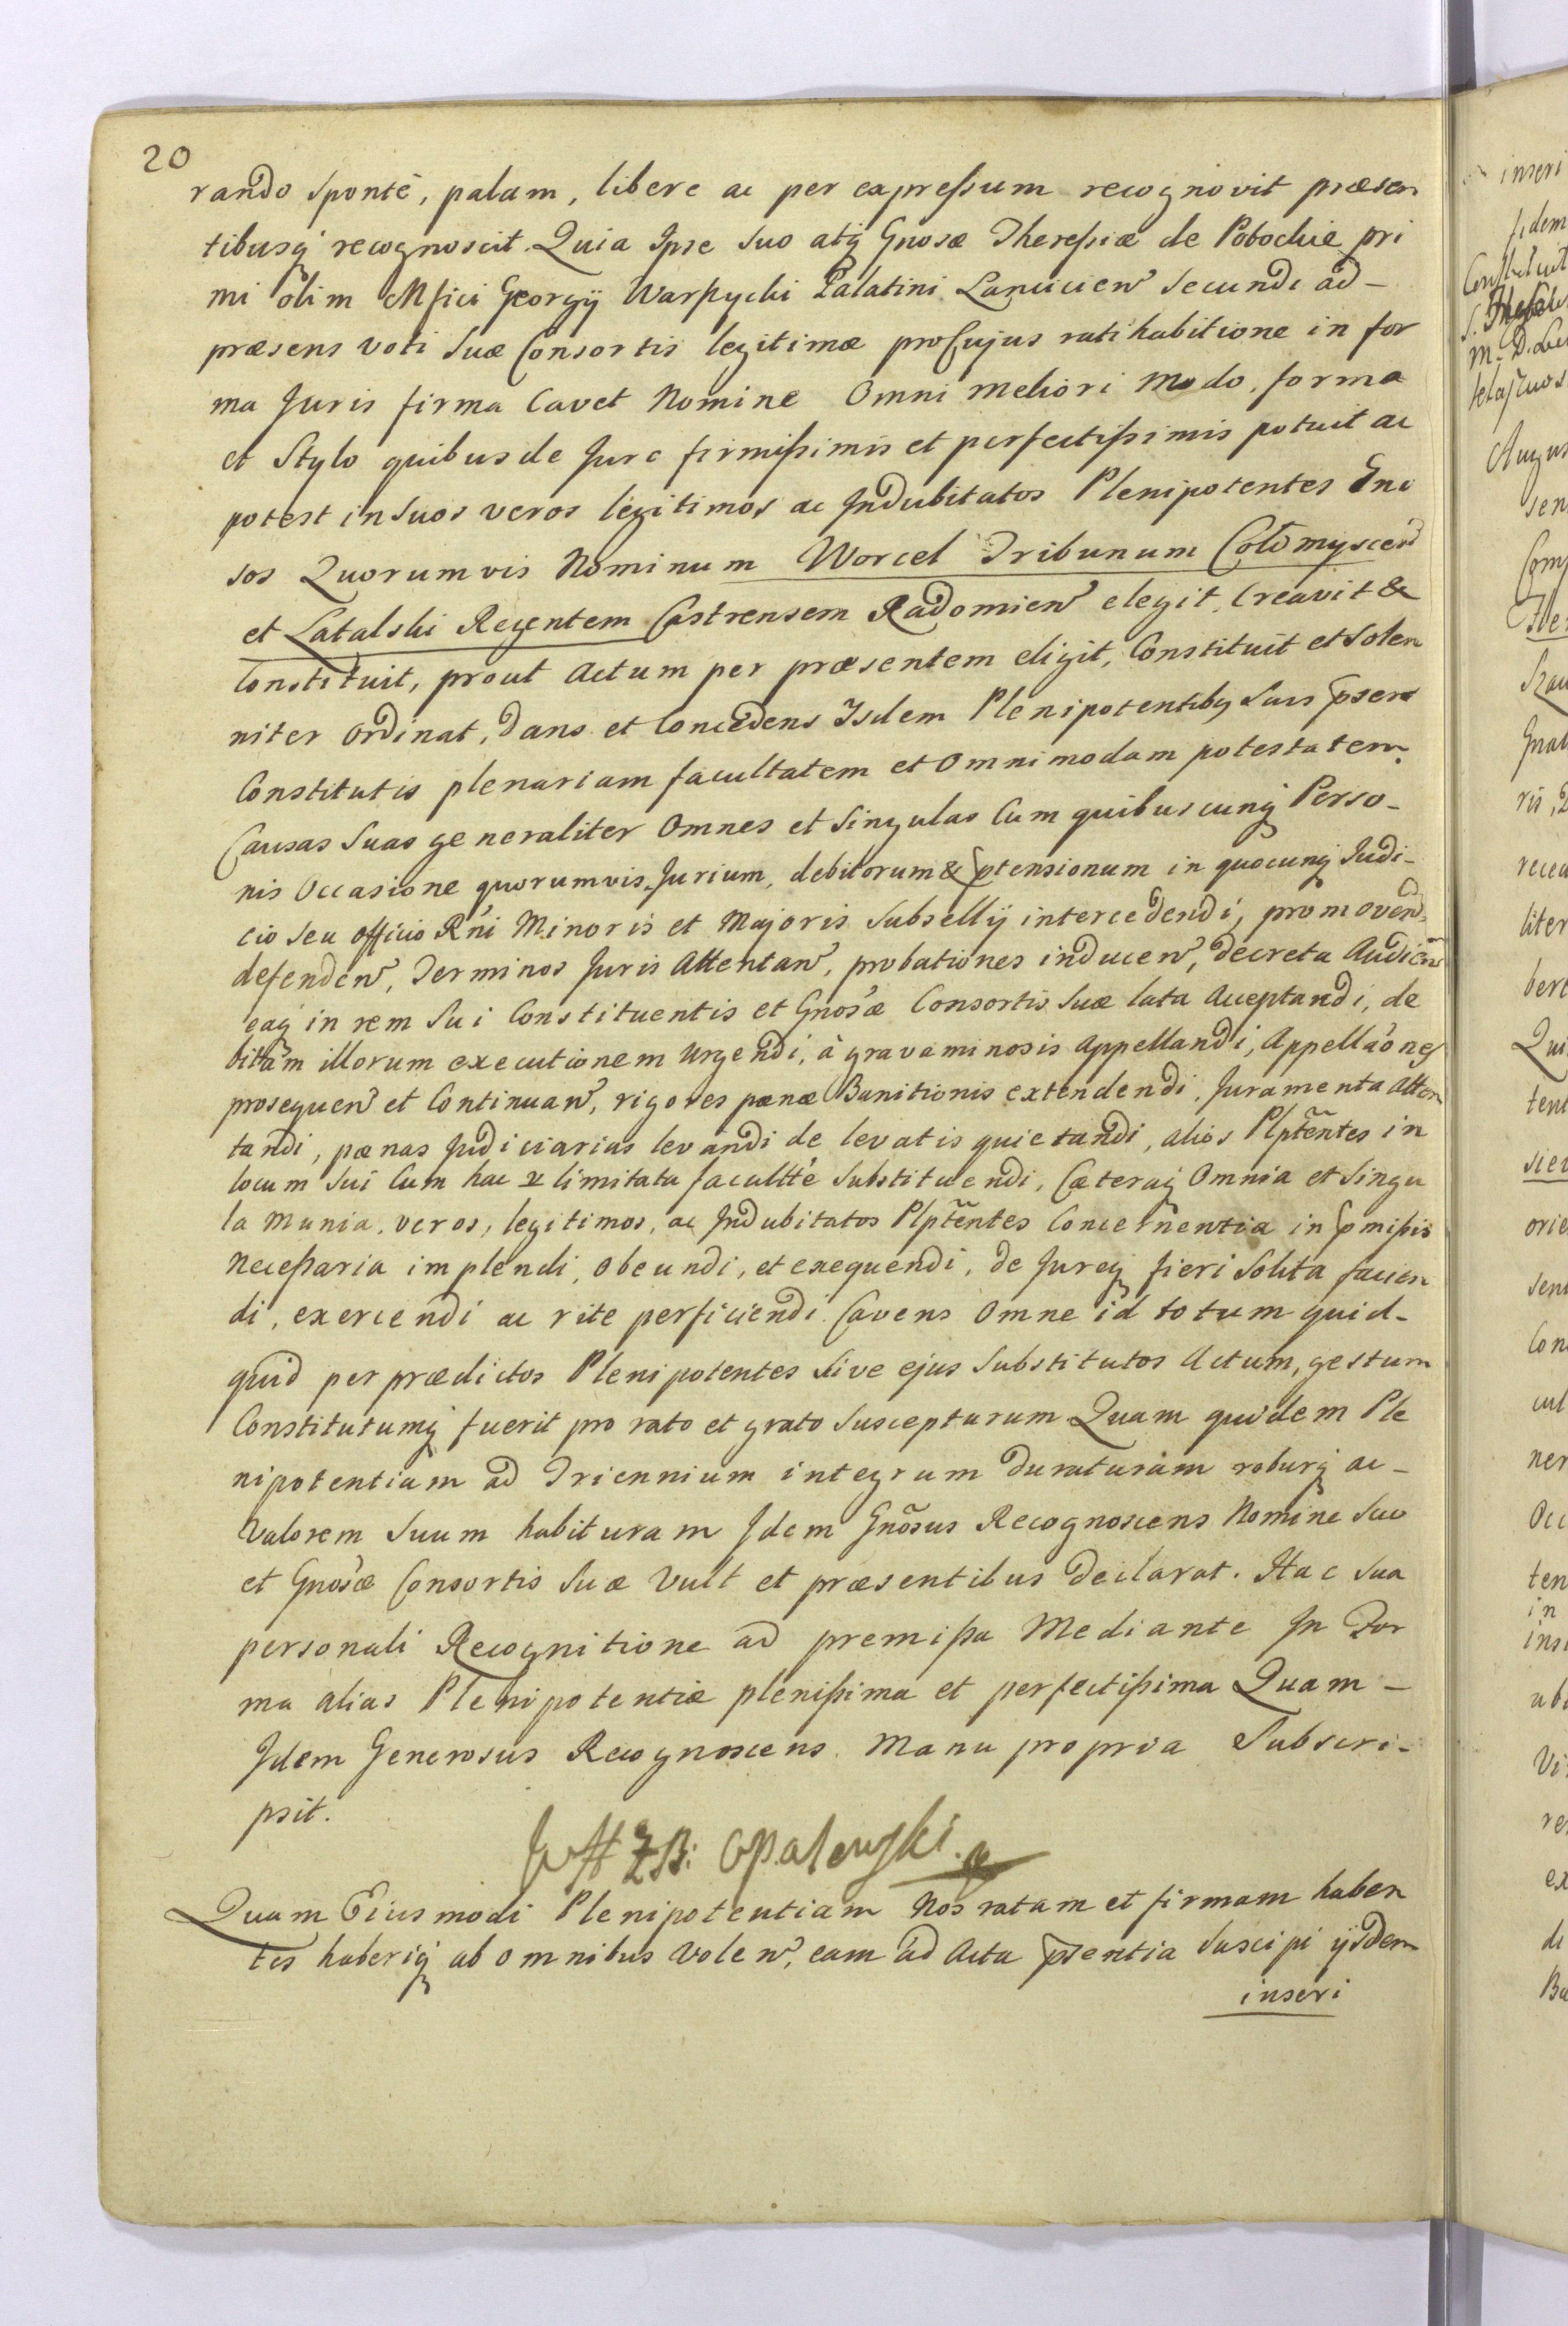 20
rando sponte, palam, libere ac per expressum recognovit præsen
tibusq recognoscit. Quia Ipse suo atq Gnosæ Theressiæ de Pobochie pri
mi olim Mfici Georgÿ Warszycki Palatini Lancicien secundi ad-
præsens voti suæ Consortis legitimæ pro Cujus ratihabitione in for
ma Juris firma Cavet Nomine Omni meliori Modo, forma
et Stylo quibus de Jure firmissimis et perfectissimis potuit ac
potest in suos veros legitimos ac Indubitatos Plenipotentes Gno
sos Quorumvis Nominum Worcel Tribunum Colomyscen
et Latalski Regentem Castrensem Radomien elegit, Creavit &
Constituit, prout Actum per præsentem eligit, Constituit et solen
niter Ordinat, Dans et Concedens Isdem Plenipotentibq Suis psen
Constitutis plenariam facultatem et Omnimodam potestatem.
Causas Suas generaliter Omnes et Singulas Cum quibuscunq Perso-
nis Occasione quorumvis Jurium, debitorum & ptensionum in quocunq Judi-
cio seu officio Rni Minoris et Majoris Subsellÿ intercedendi, promovend
defenden, Terminos Juris Attentan, probationes inducen, decreta Audien
eaq in rem Sui Constituentis et Gnosæ Consortis Suæ lata Acceptandi, de
bitam illorum executionem Urgendi, à gravaminosis Appellandi, Appellaones
prosequen et Continuan, rigores pœnæ Banitionis extendendi, Juramenta Atten
tandi, pœnas Judiciarias levandi de levatis quietandi, alios Plptentes in
locum Sui Cum hac limitata facultte Substituendi, Cæteraq Omnia et Singu
la Munia, veros, legitimos, ac Indubitatos Plptentes Concernentia in pmissis
Necessaria implendi, obeundi, et exequendi, de Jureq fieri Solita facien
di, exercendi ac rite perficiendi. Cavens Omne id totum quid-
quid per prædictos Plenipotentes sive ejus Substitutos Actum, gestum
Constitutumq fuerit pro rato et grato Suscepturum Quam quidem Ple
nipotentiam ad Triennium integrum duraturam roburq ac-
Valorem Suum habituram Idem Gnosus Recognoscens Nomine Suo
et Gnosæ Consortis Suæ Vult et præsentibus declarat. Hac Sua
personali Recognitione ad premissa Mediante In For
ma alias Plenipotentiæ plenissima et perfectissima Quam-
Idem Generosus Recognoscens Manu propria Subscri-
psit.
Opalewski
Quam Eiusmodi Plenipotentiam Nos ratam et firmam haben
tes haberiq ab omnibus Volen, eam ad Acta psentia Suscipi ÿsdem
inseri